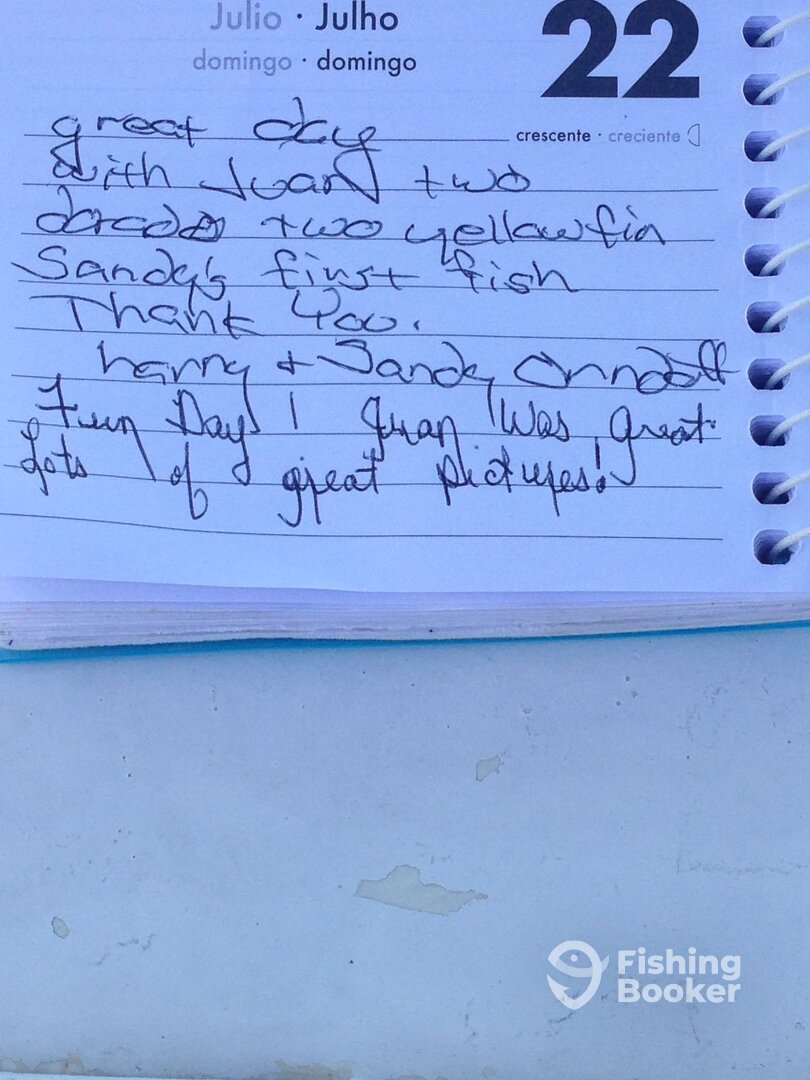 Julio · Julho
22
domingo · domingo
crescente · creciente
great day
with Juan two
dorado two yellowfin
Sandy's first fish
Thank You.
& Sandy
Fun Day! Juan Was great
Lots of great pictures!
Fishing
Booker